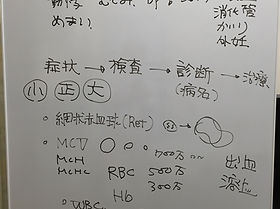 めまい
消化管
外妊
症状 → 検査 → 診断 → 治療
(病名)
小 正 大
・網状赤血球(Ret)
・MCV
MCH
MCHC RBC 500万
300万
Hb
出血
溶血
・WBC